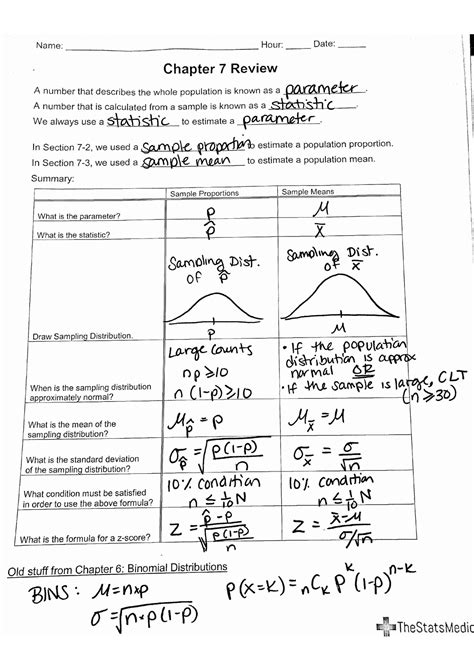 Name: ____________ Hour: _____ Date: ______
Chapter 7 Review
A number that describes the whole population is known as a parameter.
A number that is calculated from a sample is known as a statistic.
We always use a statistic to estimate a parameter.
In Section 7-2, we used a sample proportion to estimate a population proportion.
In Section 7-3, we used a sample mean to estimate a population mean.
Summary:
Sample Proportions Sample Means
What is the parameter? p μ
What is the statistic? p̂ x̄
Sampling Dist. of p̂
Sampling Dist. of x̄
Draw Sampling Distribution. p μ
When is the sampling distribution
approximately normal?
Large Counts
np ≥ 10
n(1-p) ≥ 10
• If the population
distribution is approx
normal OR
• If the sample is large, CLT
(n ≥ 30)
What is the mean of the
sampling distribution?
μp̂ = p
μx̄ = μ
What is the standard deviation
of the sampling distribution?
σp̂ = √(p(1-p)/n)
σx̄ = σ/√n
What condition must be satisfied
in order to use the above formula?
10% condition
n ≤ 1/10 N
10% condition
n ≤ 1/10 N
What is the formula for a z-score?
z = (p̂ - p)/√(p(1-p)/n)
z = (x̄ - μ)/(σ/√n)
Old stuff from Chapter 6: Binomial Distributions
BINS: μ = n×p
σ = √(n×p(1-p))
P(X=k) = nCk p^k (1-p)^(n-k)
TheStatsMedic